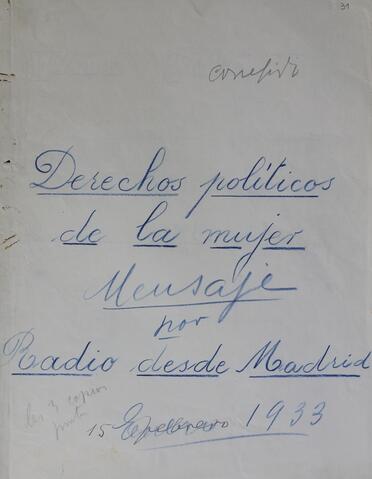 31
corregido
Derechos políticos
de la mujer
Mensaje
por
Radio desde Madrid
las 3 copias
15 Febrero 1933